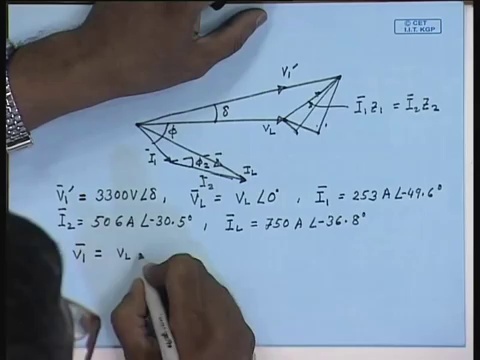 © CET
I.I.T. KGP
V₁'
δ
V_L
Ī₁Z₁ = Ī₂Z₂
φ
Ī₁
φ₂
Ī₂
I_L
V̄₁' = 3300V∠δ , V̄_L = V_L∠0° , Ī₁ = 253A∠-49.6°
Ī₂ = 506A∠-30.5° , Ī_L = 750A∠-36.8°
V̄₁ = V_L